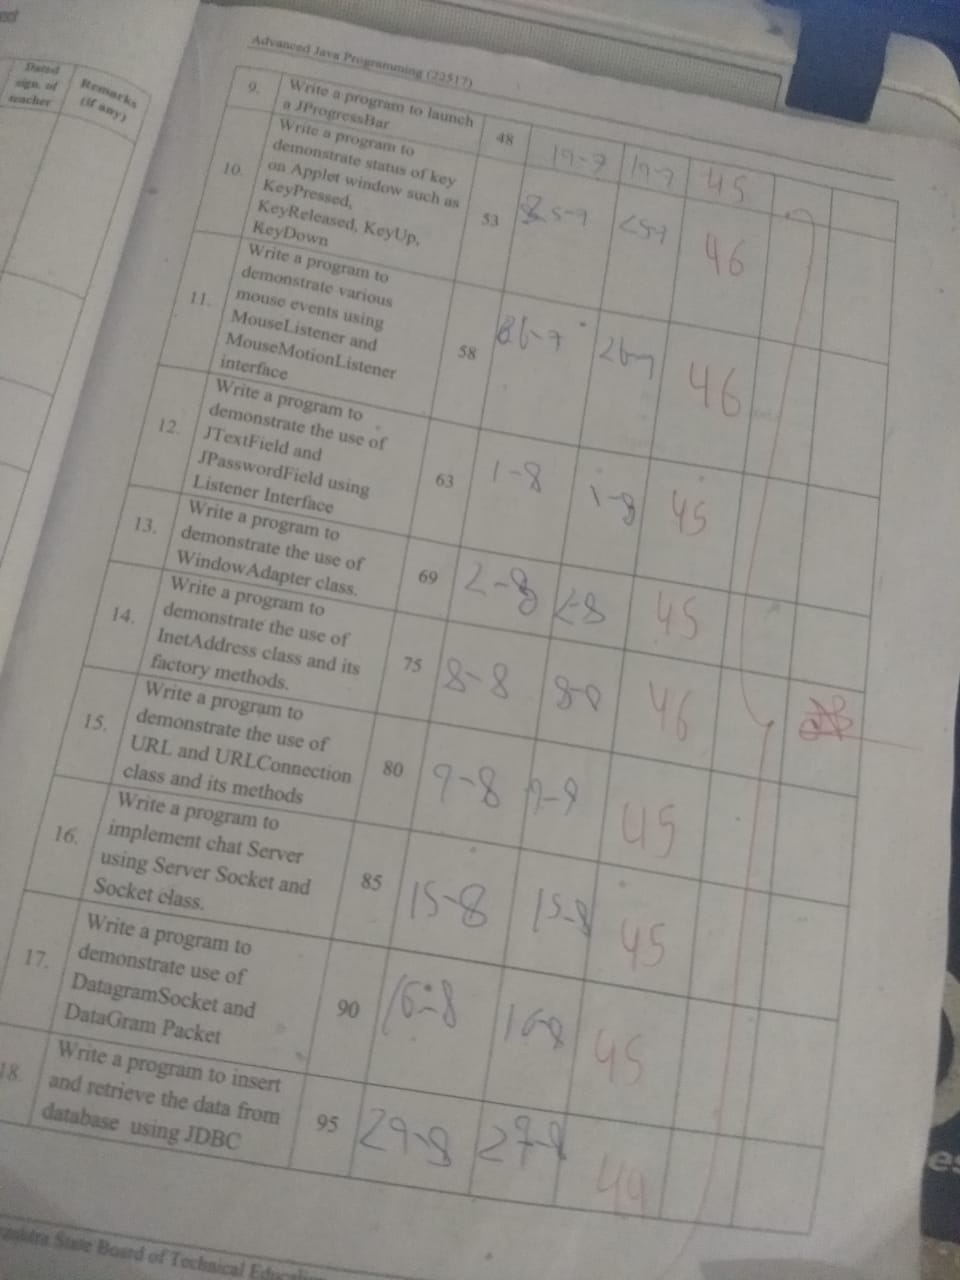 Dated
sign. of
teacher
Remarks
(if any)
Advanced Java Programming (22517)
9. Write a program to launch
a JProgressBar
48 19-7 19-7 45
10. Write a program to
demonstrate status of key
on Applet window such as
KeyPressed,
KeyReleased, KeyUp,
KeyDown
53 25-7 25-7 46
11. Write a program to
demonstrate various
mouse events using
MouseListener and
MouseMotionListener
interface
58 26-7 26-7 46
12. Write a program to
demonstrate the use of
JTextField and
JPasswordField using
Listener Interface
63 1-8 1-8 45
13. Write a program to
demonstrate the use of
WindowAdapter class.
69 2-8 2-8 45
14. Write a program to
demonstrate the use of
InetAddress class and its
factory methods.
75 8-8 8-8 46
15. Write a program to
demonstrate the use of
URL and URLConnection
class and its methods
80 9-8 9-8 45
16. Write a program to
implement chat Server
using Server Socket and
Socket class.
85 15-8 15-8 45
17. Write a program to
demonstrate use of
DatagramSocket and
DataGram Packet
90 16-8 16-8 45
18. Write a program to insert
and retrieve the data from
database using JDBC
95 29-8 27-8 44
State Board of Technical